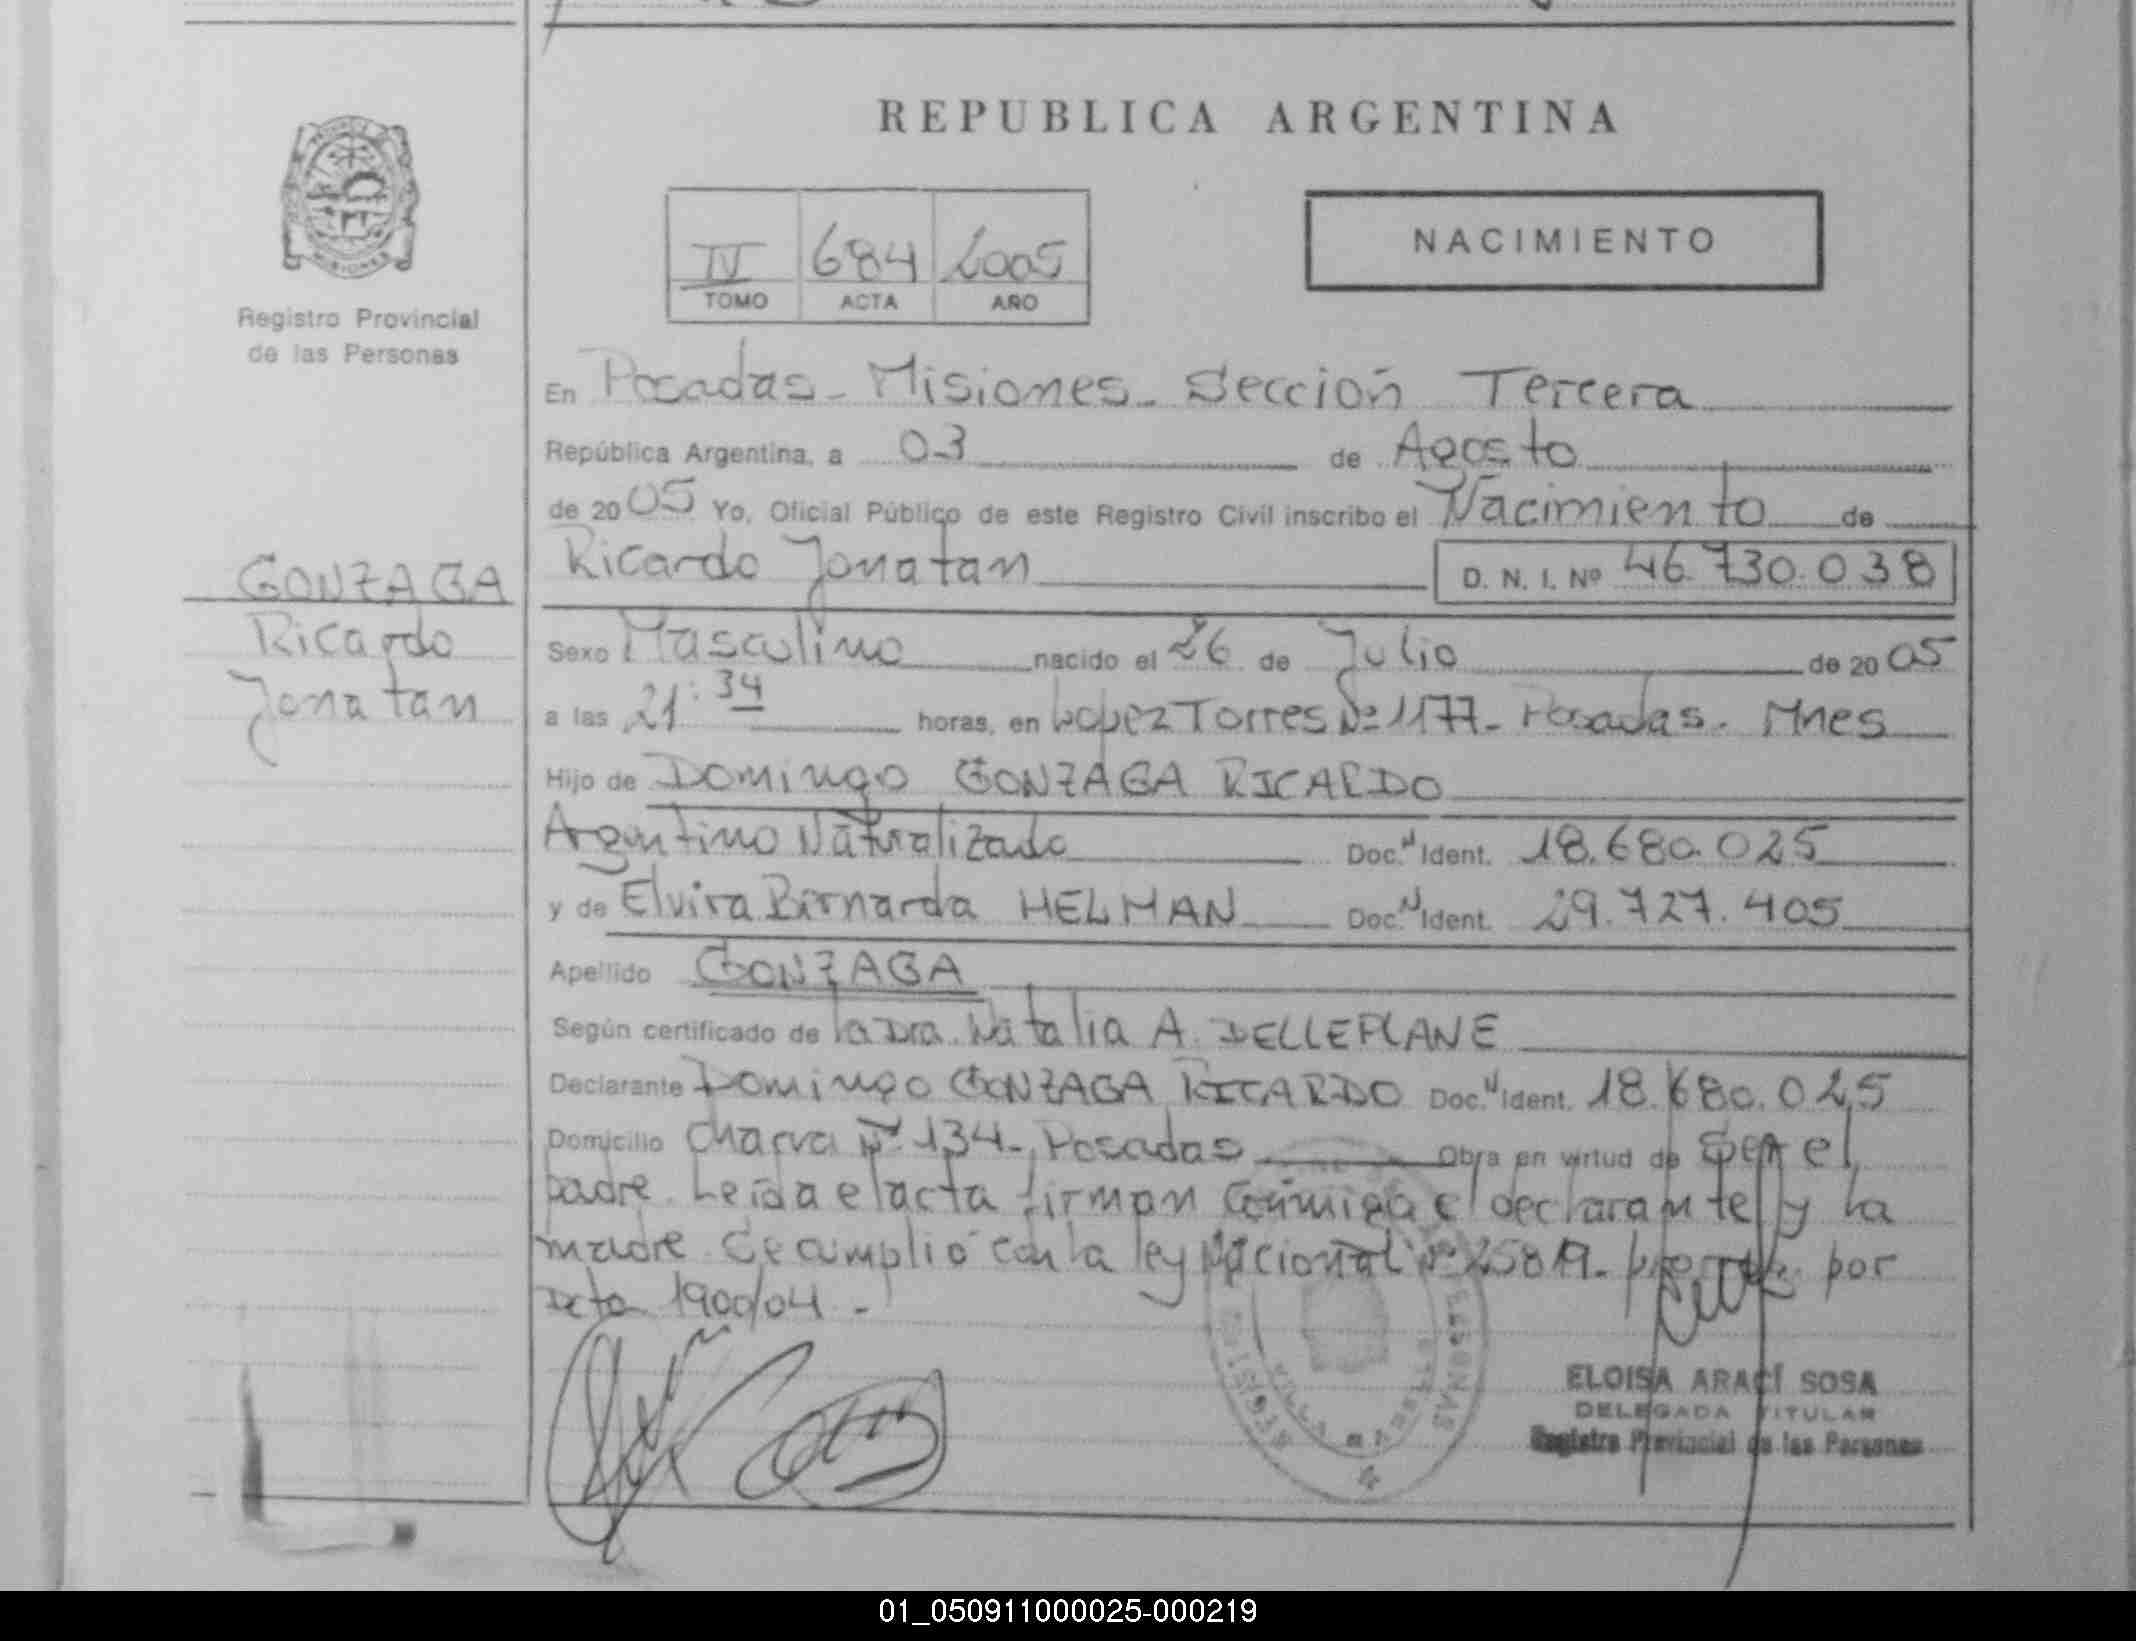 REPUBLICA ARGENTINA
PROVINCIA
MISIONES
Registro Provincial
de las Personas
IV 684 2005
TOMO ACTA AÑO
NACIMIENTO
En Posadas - Misiones - Sección Tercera
República Argentina, a 03 de Agosto
de 2005 Yo, Oficial Público de este Registro Civil inscribo el Nacimiento de
Ricardo Jonatan D. N. I. Nº 46.730.038
GONZAGA
Ricardo
Jonatan
Sexo Masculino nacido el 26 de Julio de 2005
a las 21:34 horas, en Lopez Torres Nº 1177 - Posadas - Mnes
Hijo de Domingo GONZAGA RICARDO
Argentino Naturalizado Doc. N Ident. 18.680.025
y de Elvira Bernarda HELMAN Doc. N Ident. 29.727.405
Apellido GONZAGA
Según certificado de la Dra. Natalia A. DELLEPIANE
Declarante Domingo GONZAGA RICARDO Doc. N Ident. 18.680.025
Domicilio Chacra Nº 134 - Posadas Obra en virtud de ser el
padre. Leída el acta firman conmigo el declarante y la
madre. Se cumplió con la ley Nacional Nº 25819 - por
Dcto 1900/04 -
ELOISA ARACÍ SOSA
DELEGADA TITULAR
Registro Provincial de las Personas
01_050911000025-000219